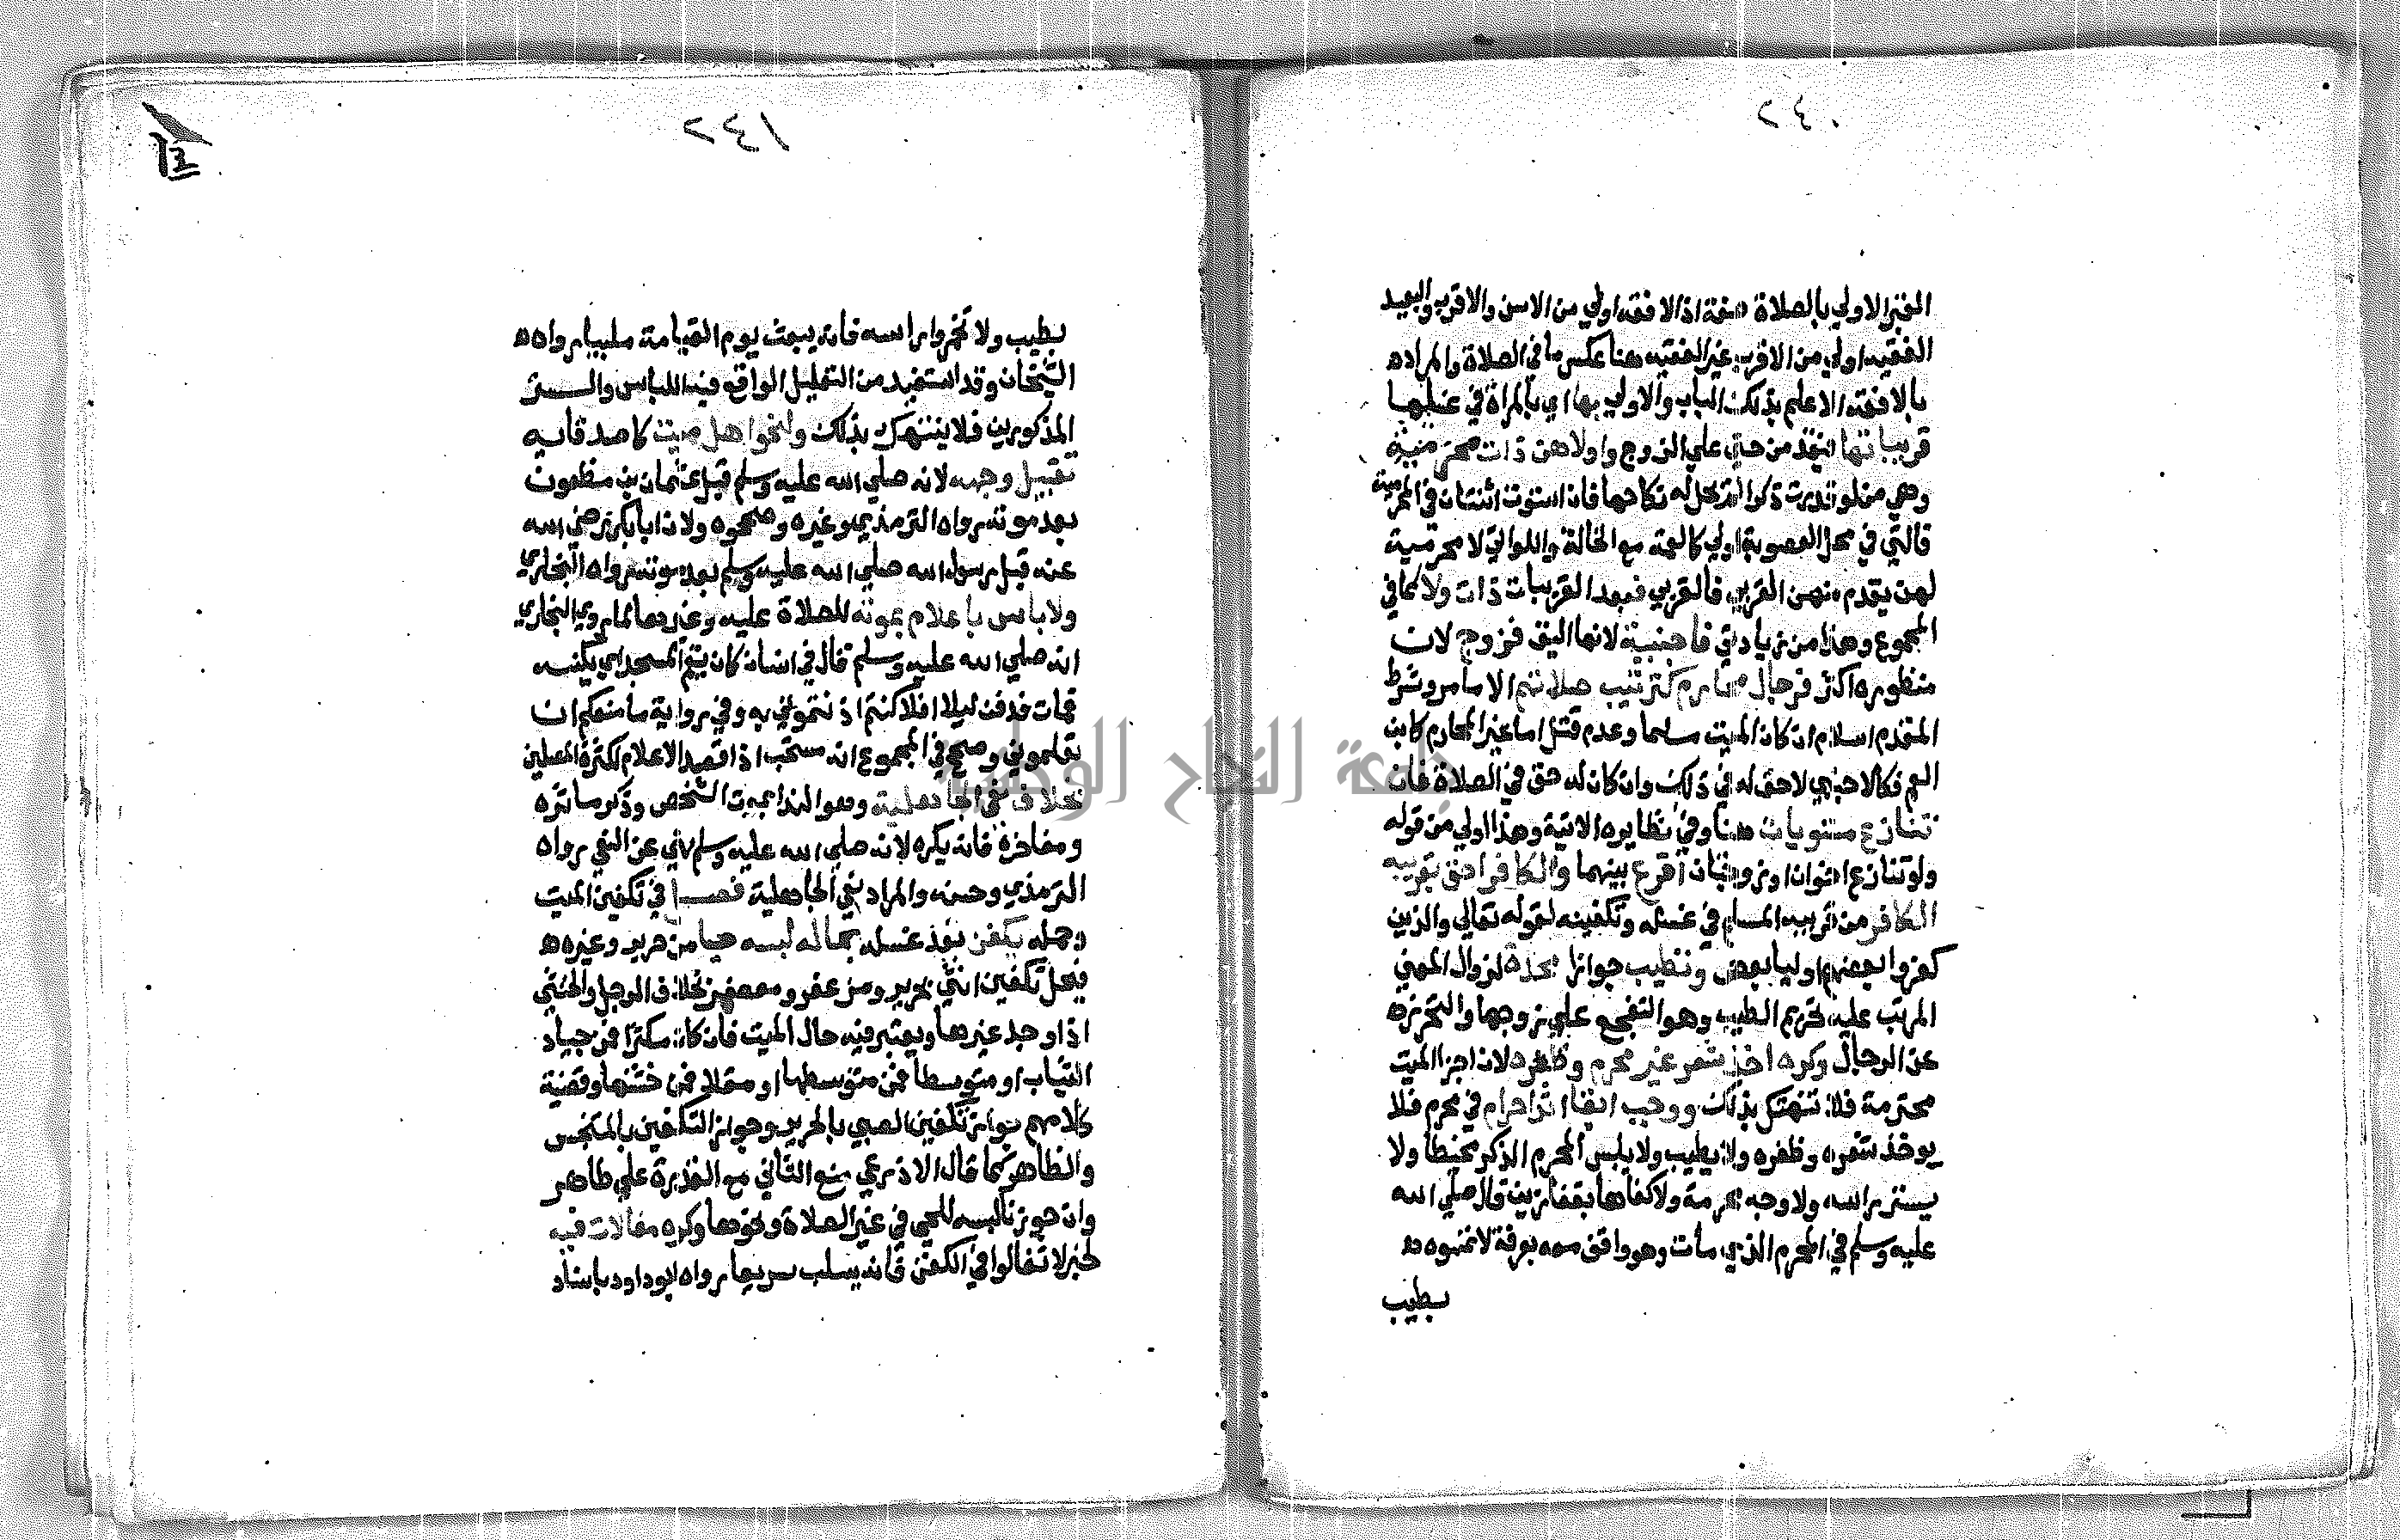 ٢٤٠
الغير الاولي بالصلاة صفة اذ الافقه اولي من الاسن والاقرب والبعيد
الفقيه اولي من الاقرب غير الفقيه هنا عكس ما في الصلاة والمراد
بالافقه الاعلم بذلك الباب والاولي بها اي بالمراة في غسلها
قريباتها فيقدمن حتي علي الزوج واولاهن ذات محرمية
وهي من لو قدرت ذكرا لم تحل له نكاحها فان استوت اثنتان في المحرمية
فالتي في محل العصوبة اولي كالعمة مع الخالة واللواتي لا محرمية
لهن يقدم منهن القربي فالقربي فبعد القريبات ذات ولا كما في
المجموع وهذا من زيادتي فاجنبية لانها اليق فزوج لان
منظوره اكثر فرجال محارم كترتيب صلاتهم الا ما مر وشرط
المقدم اسلام ان كان الميت مسلما وعدم قتل اما غير المحارم كابن
العم فكالاجنبي لا حق له في ذلك وان كان له حق في الصلاة فان
تنازع مستويان هنا وفي نظايره الاتية وهذا اولي من قوله
ولو تنازع اخوان او زوجتان اقرع بينهما والكافر احق بقريبه
الكافر من قريبه المسلم في غسله وتكفينه لقوله تعالي والذين
كفروا بعضهم اوليا بعض وتطيب جوازا محدة لزوال المعني
المرتب عليه تحريم الطيب وهو التفجع علي زوجها والتحرز
عن الرجال وكره اخذ شعر غير محرم وظفره لان اجزا الميت
محترمة فلا تنتهك بذلك ووجب ابقا اثر احرام في محرم فلا
يوخذ شعره وظفره ولا يطيب ولا يلبس المحرم الذكر مخيطا ولا
يستر راسه ولا وجه محرمة ولا كفاها بقفازين قال صلي الله
عليه وسلم في المحرم الذي مات وهو واقف معه بعرفة لا تمسوه
بطيب
١٤٢
بطيب ولا تخمروا راسه فانه يبعث يوم القيامة ملبيا رواه
الشيخان وقد استفيد من التعليل الواقع فيه اللباس والستر
المذكورين فلا ينتهك بذلك ولنحو اهل ميت كاصدقائه
تقبيل وجهه لانه صلي الله عليه وسلم قبل عثمان بن مظعون
بعد موته رواه الترمذي وغيره وصححوه ولان ابا بكر رضي الله
عنه قبل رسول الله صلي الله عليه وسلم بعد موته رواه البخاري
ولا باس باعلام بموته للصلاة عليه وغيرها لما روي البخاري
انه صلي الله عليه وسلم قال في انسان كان يقم المسجد اي يكنسه
فمات فدفن ليلا افلا كنتم اذنتموني به وفي رواية ما منعكم ان
تعلموني وصحح في المجموع انه مستحب اذا قصد الاعلام لكثرة المصلين
بخلاف نعي الجاهلية وهو الندا بموت الشخص وذكر ماثره
ومفاخرة فانه يكره لانه صلي الله عليه وسلم نهي عن النعي رواه
الترمذي وحسنه والمراد نعي الجاهلية فصل في تكفين الميت
وحمله يكفن بعد غسله بما له لبسه حيا من حرير وغيره
فيحل تكفين انثي بحرير ومزعفر ومعصفر بخلاف الرجل والخنثي
اذا وجد غيرها ويعتبر فيه حال الميت فان كان مكثرا فمن جياد
الثياب او متوسطا فمن متوسطها او مقلا فمن خشنها وقضية
كلامهم جواز تكفين الصبي بالحرير وجواز التكفين بالمتنجس
والظاهر كما قال الاذرعي منع الثاني مع القدرة علي طاهر
وان جوزنا لبسه للحي في غير الصلاة ونحوها وكره مغالات فيه
لخبر لا تغالوا في الكفن فانه يسلب سريعا رواه ابو داود باسناد
جامعة النجاح الوطنية